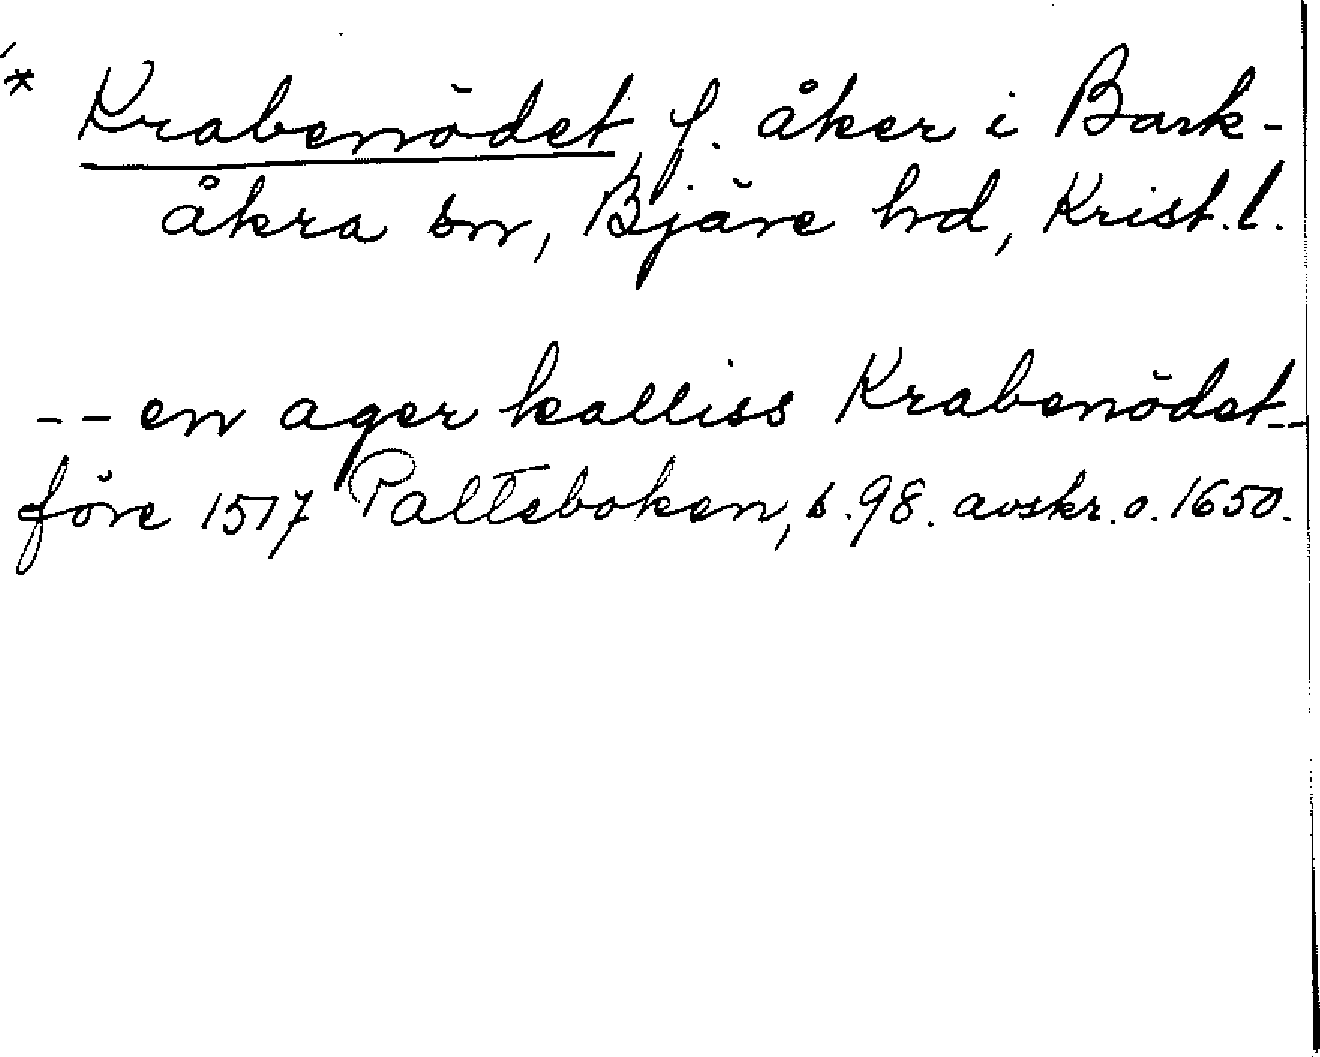 * Krabenödet, f. åker i Bark-
åkra sn, Bjäre hd, Krist.l.
-- en ager kalliss Krabenödet--
före 1517 Palteboken, s. 98. avskr. o. 1650.